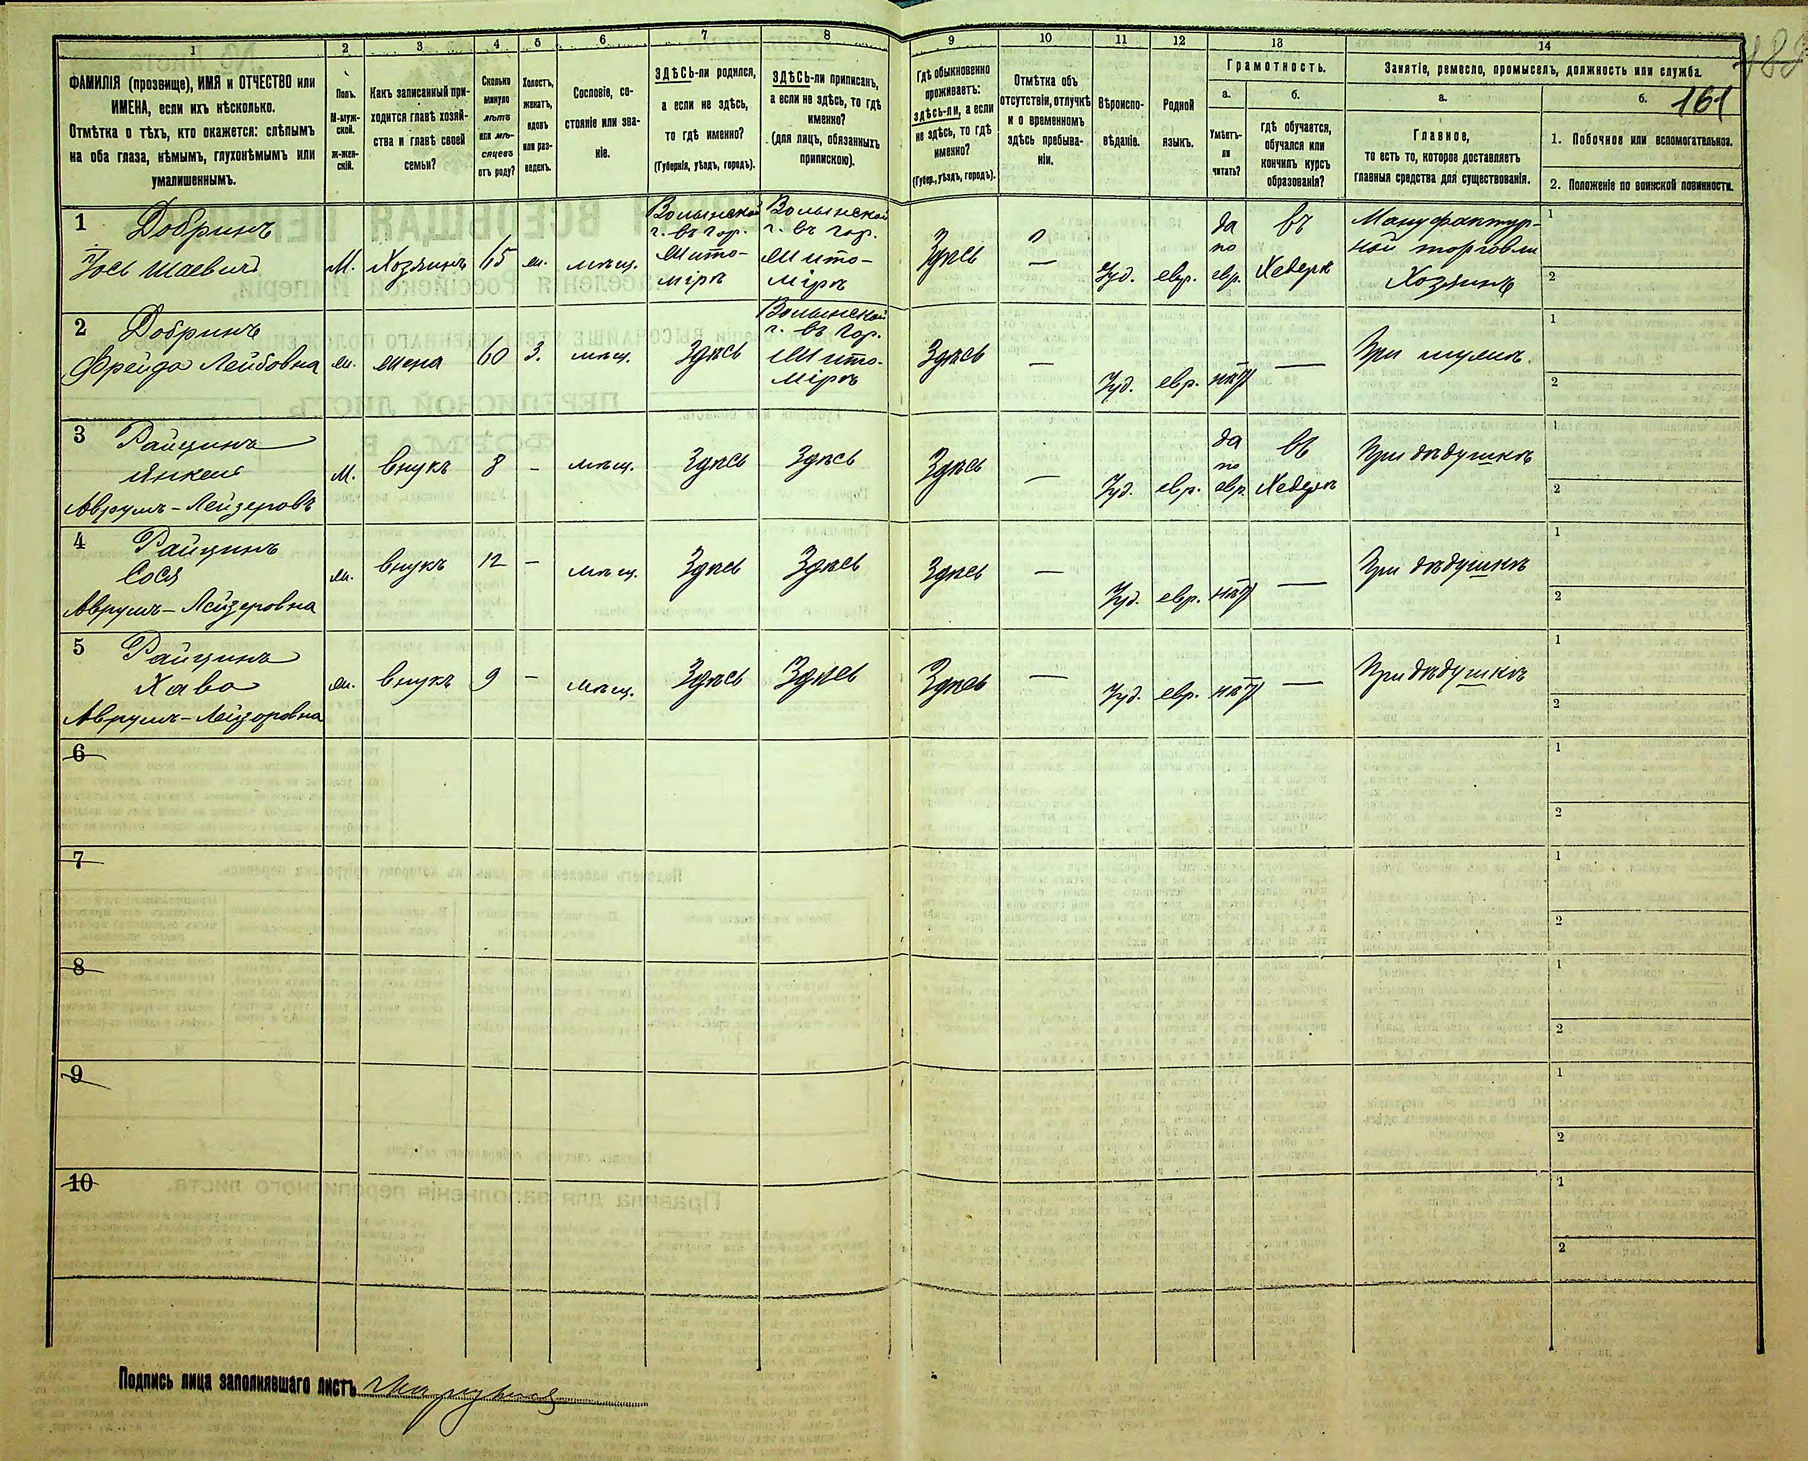 1
2
3
4
5
6
7
8
9
10
11
12
13
14
ФАМИЛІЯ (прозвище), ИМЯ и ОТЧЕСТВО или
ИМЕНА, если ихъ нѣсколько.
Отмѣтка о тѣхъ, кто окажется: слѣпымъ
на оба глаза, нѣмымъ, глухонѣмымъ или
умалишеннымъ.
Полъ.
М-муж-
ской.
Ж-жен-
скій.
Какъ записанный при-
ходится главѣ хозяй-
ства и главѣ своей
семьи?
Сколько
минуло
лѣтъ
или мѣ-
сяцевъ
отъ роду?
Холостъ,
женатъ,
вдовъ
или раз-
веденъ.
Сословіе, со-
стояніе или зва-
ніе.
ЗДѢСЬ-ли родился,
а если не здѣсь,
то гдѣ именно?
(Губернія, уѣздъ, городъ).
ЗДѢСЬ-ли приписанъ,
а если не здѣсь, то гдѣ
именно?
(для лицъ, обязанныхъ
припискою).
Гдѣ обыкновенно
проживаетъ:
здѣсь-ли, а если
не здѣсь, то гдѣ
именно?
(Губер., уѣздъ, городъ).
Отмѣтка объ
отсутствіи, отлучкѣ
и о временномъ
здѣсь пребыва-
ніи.
Вѣроиспо-
вѣданіе.
Родной
языкъ.
Грамотность.
а.
Умѣетъ-
ли
читать?
б.
Гдѣ обучается,
обучался или
кончилъ курсъ
образованія?
Занятіе, ремесло, промыселъ, должность или служба.
а.
Главное,
то есть то, которое доставляетъ
главныя средства для существованія.
б.
161
1. Побочное или вспомогательное.
2. Положеніе по воинской повинности.
1 Добринъ
Іось Шаевичъ
М. Хозяинъ 65 ж. мѣщ.
Волынской
г. въ гор.
Жито-
мірѣ
Волынской
г. въ гор.
Жито-
мірѣ
Здѣсь
—
Іуд. евр.
да
по
евр.
въ
Хедерѣ
Мануфактур-
ной торговли
Хозяинъ
1
2
2 Добринъ
Фрейда Лейбовна
ж. жена 60 З. мѣщ. Здѣсь
Волынской
г. въ гор.
Жито-
мірѣ
Здѣсь — Іуд. евр. нѣтъ —
При мужѣ.
1
2
3 Райцинъ
Янкель
Аврумъ-Лейзеровъ
М. внукъ 8 - мѣщ. Здѣсь Здѣсь Здѣсь — Іуд. евр.
да
по
евр.
въ
Хедерѣ
При дѣдушкѣ
1
2
4 Райцинъ
Сося
Аврумъ-Лейзеровна
ж. внукъ 12 - мѣщ. Здѣсь Здѣсь Здѣсь — Іуд. евр. нѣтъ —
При дѣдушкѣ
1
2
5 Райцинъ
Хава
Аврумъ-Лейзоровна
ж. внукъ 9 - мѣщ. Здѣсь Здѣсь Здѣсь — Іуд. евр. нѣтъ —
При дѣдушкѣ
1
2
6
1
2
7
1
2
8
1
2
9
1
2
10
1
2
Подпись лица заполнявшаго листъ